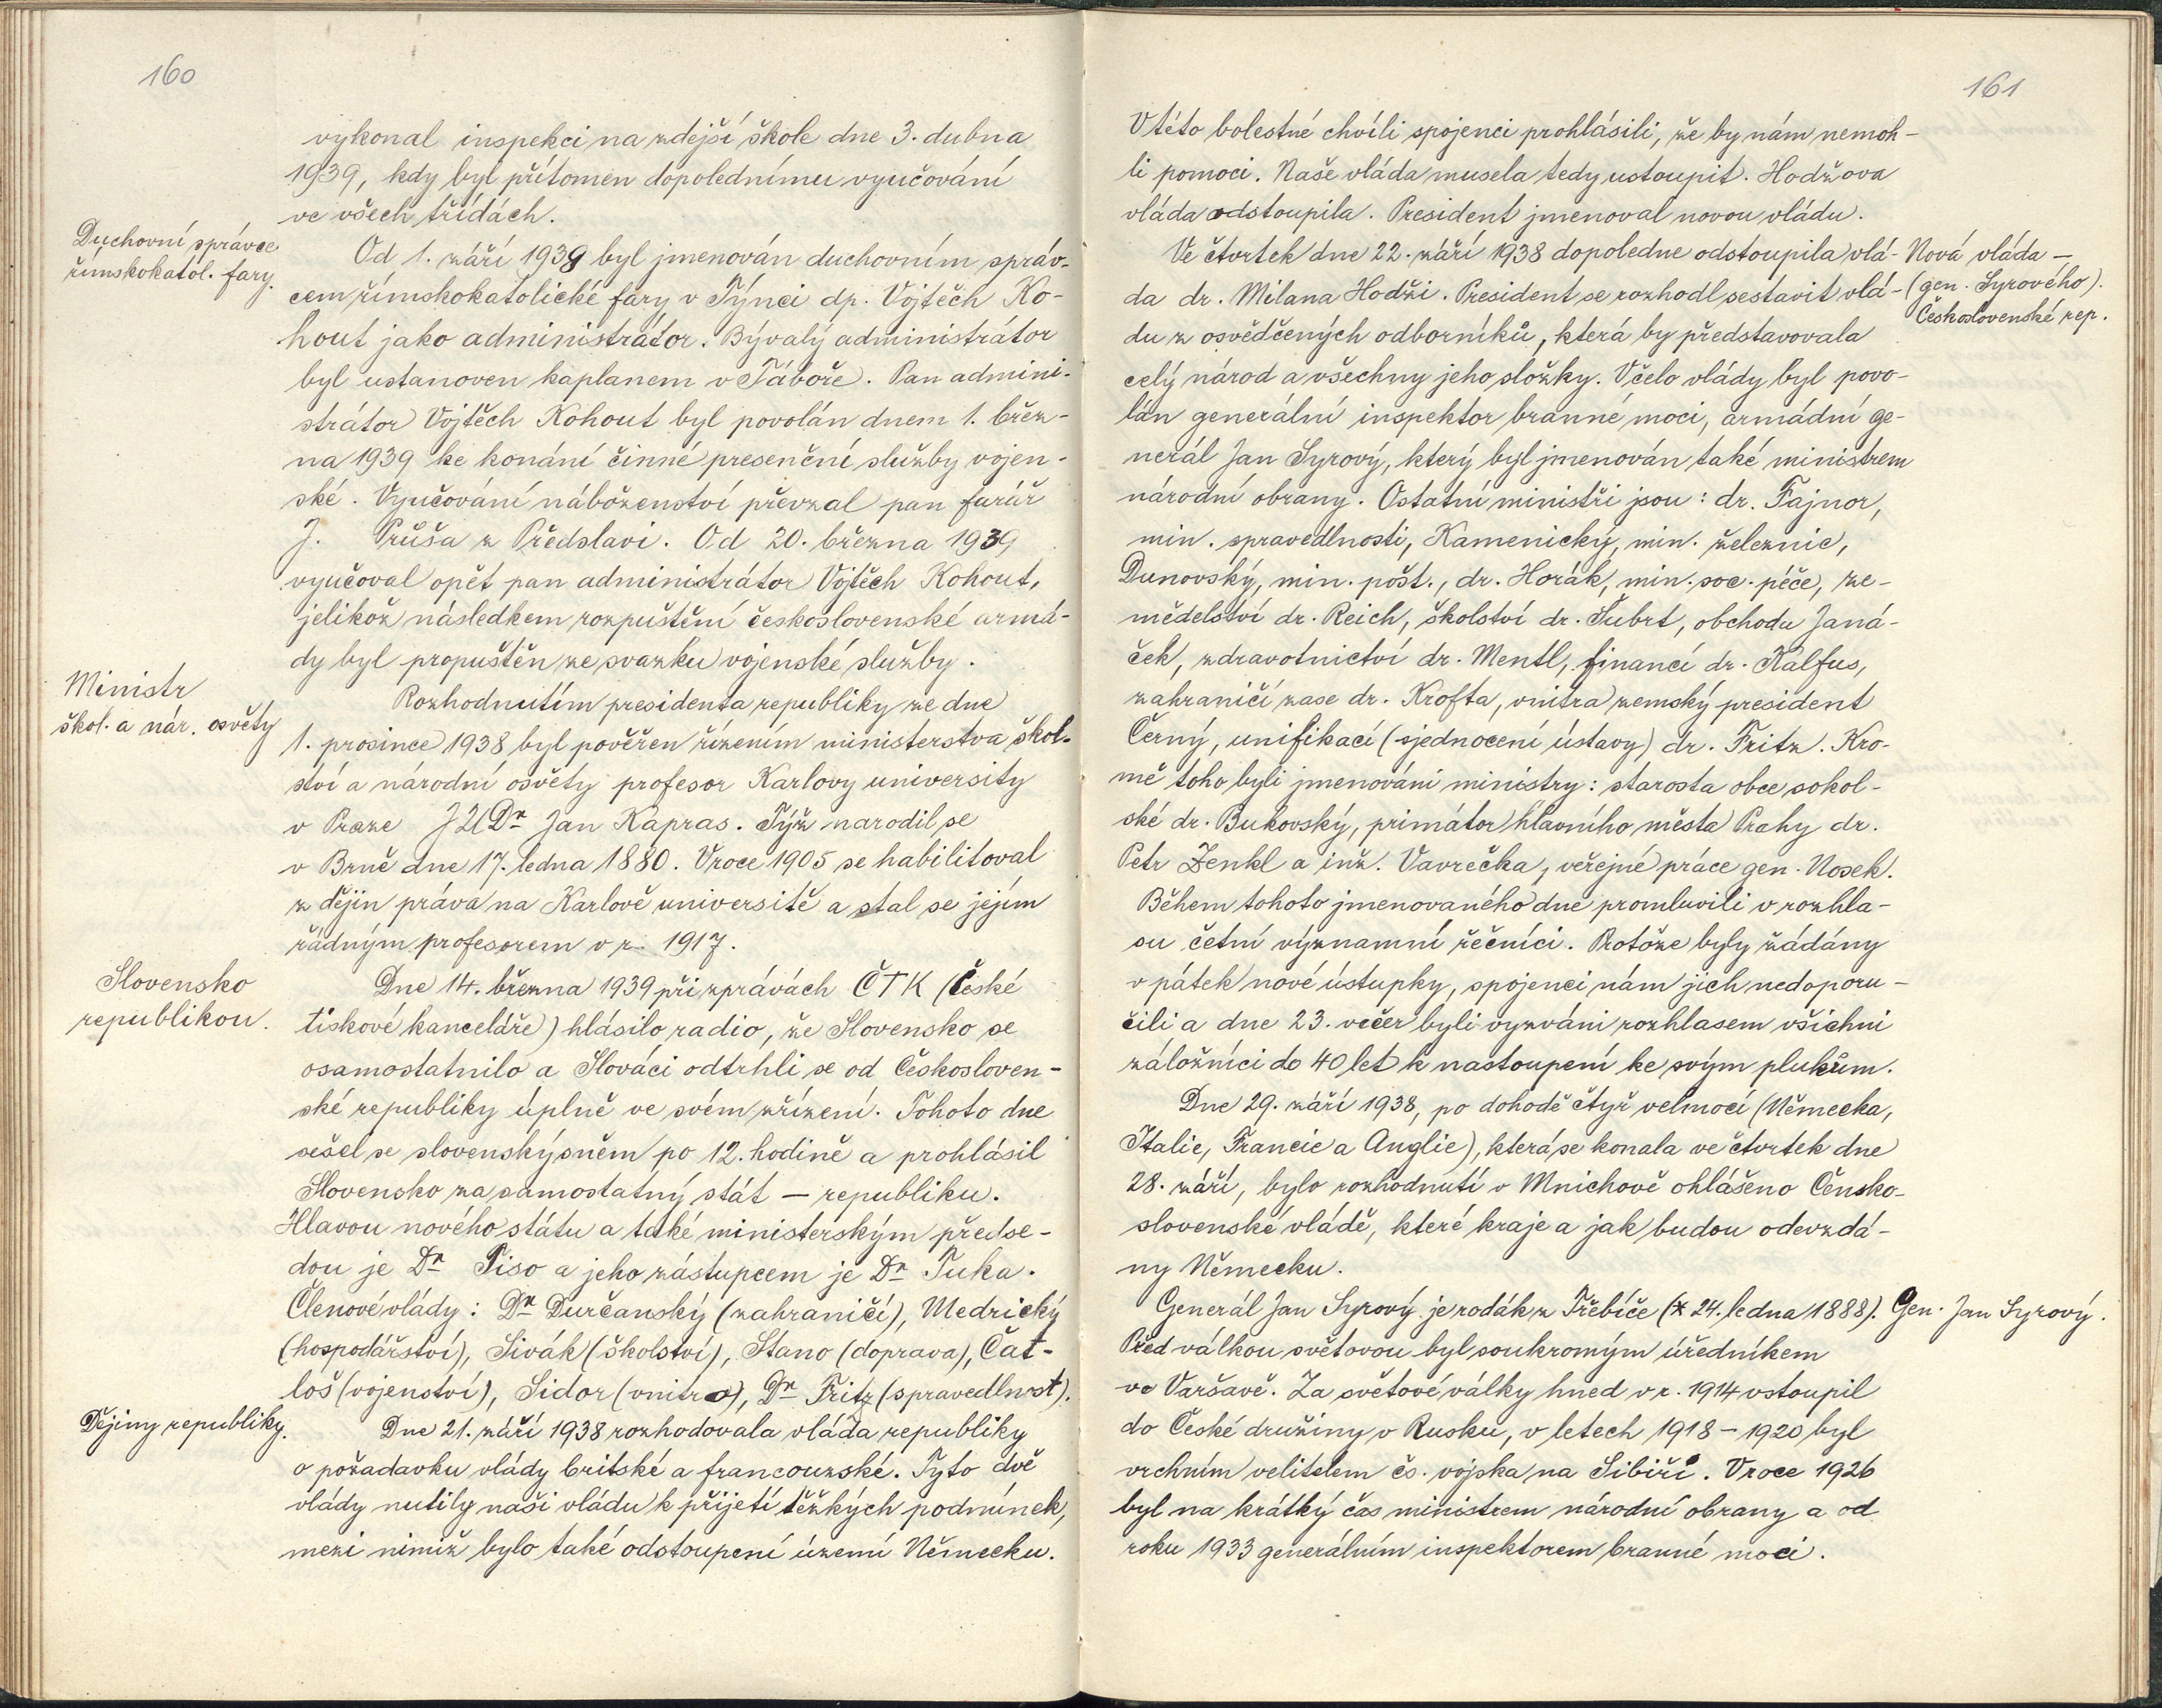 160
vykonal inspekci na zdejší škole dne 3. dubna
1939, kdy byl přítomen dopolednímu vyučování
ve všech třídách.
Duchovní správce
římskokatol. fary.
Od 1. září 1938 byl jmenován duchovním správ-
cem římskokatolické fary v Týnci dp. Vojtěch Ko-
hout jako administrátor. Bývalý administrátor
byl ustanoven kaplanem v Táboře. Pan admini-
strátor Vojtěch Kohout byl povolán dnem 1. břez-
na 1939 ke konání činné presenční služby vojen-
ské. Vyučování náboženství převzal pan farář
J. Průša z Předslavi. Od 20. března 1939
vyučoval opět pan administrátor Vojtěch Kohout,
jelikož následkem rozpuštění československé armá-
dy byl propuštěn ze svazku vojenské služby.
Ministr
škol. a nár. osvěty
Rozhodnutím presidenta republiky ze dne
1. prosince 1938 byl pověřen řízením ministerstva škol-
ství a národní osvěty profesor Karlovy university
v Praze JUDr Jan Kapras. Týž narodil se
v Brně dne 17. ledna 1880. V roce 1905 se habilitoval
z dějin práva na Karlově universitě a stal se jejím
řádným profesorem v r. 1917.
Slovensko
republikou.
Dne 14. března 1939 při zprávách ČTK (České
tiskové kanceláře) hlásilo radio, že Slovensko se
osamostatnilo a Slováci odtrhli se od Českosloven-
ské republiky úplně ve svém zřízení. Tohoto dne
sešel se slovenský sněm po 12. hodině a prohlásil
Slovensko za samostatný stát – republiku.
Hlavou nového státu a také ministerským předse-
dou je Dr Tiso a jeho zástupcem je Dr Tuka.
Členové vlády: Dr Durčanský (zahraničí), Medrický
(hospodářství), Sivák (školství), Stano (doprava), Čat-
loš (vojenství), Sidor (vnitro), Dr Fritz (spravedlnost).
Dějiny republiky.
Dne 21. září 1938 rozhodovala vláda republiky
o požadavku vlády britské a francouzské. Tyto dvě
vlády nutily naši vládu k přijetí těžkých podmínek,
mezi nimiž bylo také odstoupení území Německu.
161
V této bolestné chvíli spojenci prohlásili, že by nám nemoh-
li pomoci. Naše vláda musela tedy ustoupit. Hodžova
vláda odstoupila. President jmenoval novou vládu.
Nová vláda –
(gen. Syrového).
Československé rep.
Ve čtvrtek dne 22. září 1938 dopoledne odstoupila vlá-
da dr. Milana Hodži. President se rozhodl sestavit vlá-
du z osvědčených odborníků, která by představovala
celý národ a všechny jeho složky. V čelo vlády byl povo-
lán generální inspektor branné moci, armádní ge-
nerál Jan Syrový, který byl jmenován také ministrem
národní obrany. Ostatní ministři jsou: dr. Fajnor,
min. spravedlnosti, Kamenický, min. železnic,
Dunovský, min. pošt., dr. Horák, min. soc. péče, ze-
mědelství dr. Reich, školství dr. Šubrt, obchodu Janá-
ček, zdravotnictví dr. Mentl, financí dr. Kalfus,
zahraničí zase dr. Krofta, vnitra zemský president
Černý, unifikací (sjednocení ústavy) dr. Fritz. Kro-
mě toho byli jmenováni ministry: starosta obce sokol-
ské dr. Bukovský, primátor hlavního města Prahy dr.
Petr Zenkl a inž. Vavrečka, veřejné práce gen. Nosek.
Během tohoto jmenovaného dne promluvili v rozhla-
su četní významní řečníci. Protože byly žádány
v pátek nové ústupky, spojenci nám jich nedoporu-
čili a dne 23. večer byli vyzváni rozhlasem všichni
záložníci do 40 let k nastoupení ke svým plukům.
Dne 29. září 1938, po dohodě čtyř velmocí (Německa,
Italie, Francie a Anglie), která se konala ve čtvrtek dne
28. září, bylo rozhodnutí v Mnichově ohlášeno Čensko-
slovenské vládě, které kraje a jak budou odevzdá-
ny Německu.
Generál Jan Syrový je rodák z Třebíče (* 24. ledna 1888).
Gen. Jan Syrový.
Před válkou světovou byl soukromým úředníkem
ve Varšavě. Za světové války hned v r. 1914 vstoupil
do České družiny v Rusku, v letech 1918 – 1920 byl
vrchním velitelem čs. vojska na Sibiři. V roce 1926
byl na krátký čas ministrem národní obrany a od
roku 1933 generálním inspektorem branné moci.